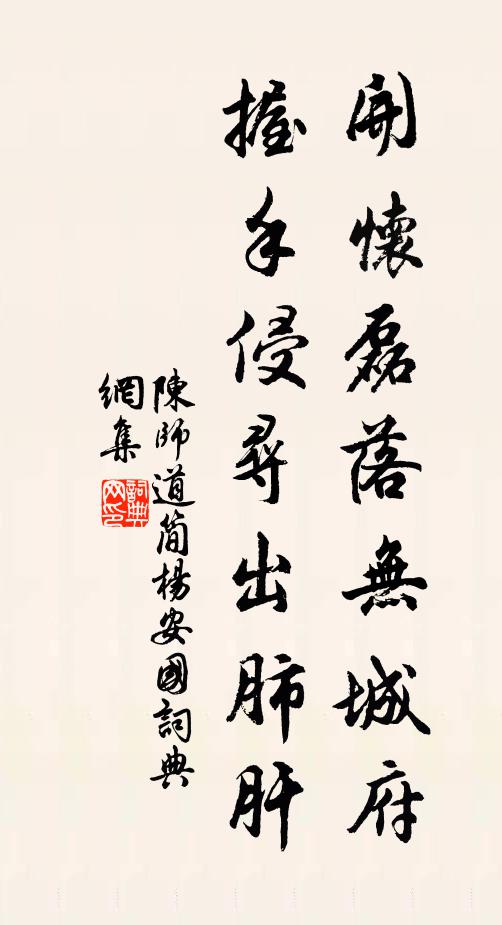 開懷磊落無城府
握手侵尋出肺肝
陳師道簡楊安國詞典
網集
詞典
网印